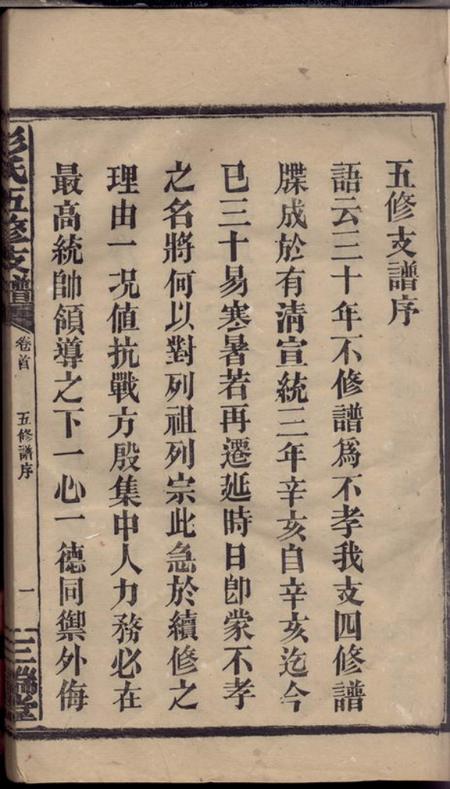 五修支譜序
語云三十年不修譜爲不孝我支四修譜
牒成於有清宣統三年辛亥自辛亥迄今
已三十易寒暑若再遷延時日卽蒙不孝
之名將何以對列祖列宗此急於續修之
理由一况値抗戰方殷集中人力務必在
最高統帥領導之下一心一德同禦外侮
彭氏五修支譜
卷首
五修譜序
一
三瑞堂